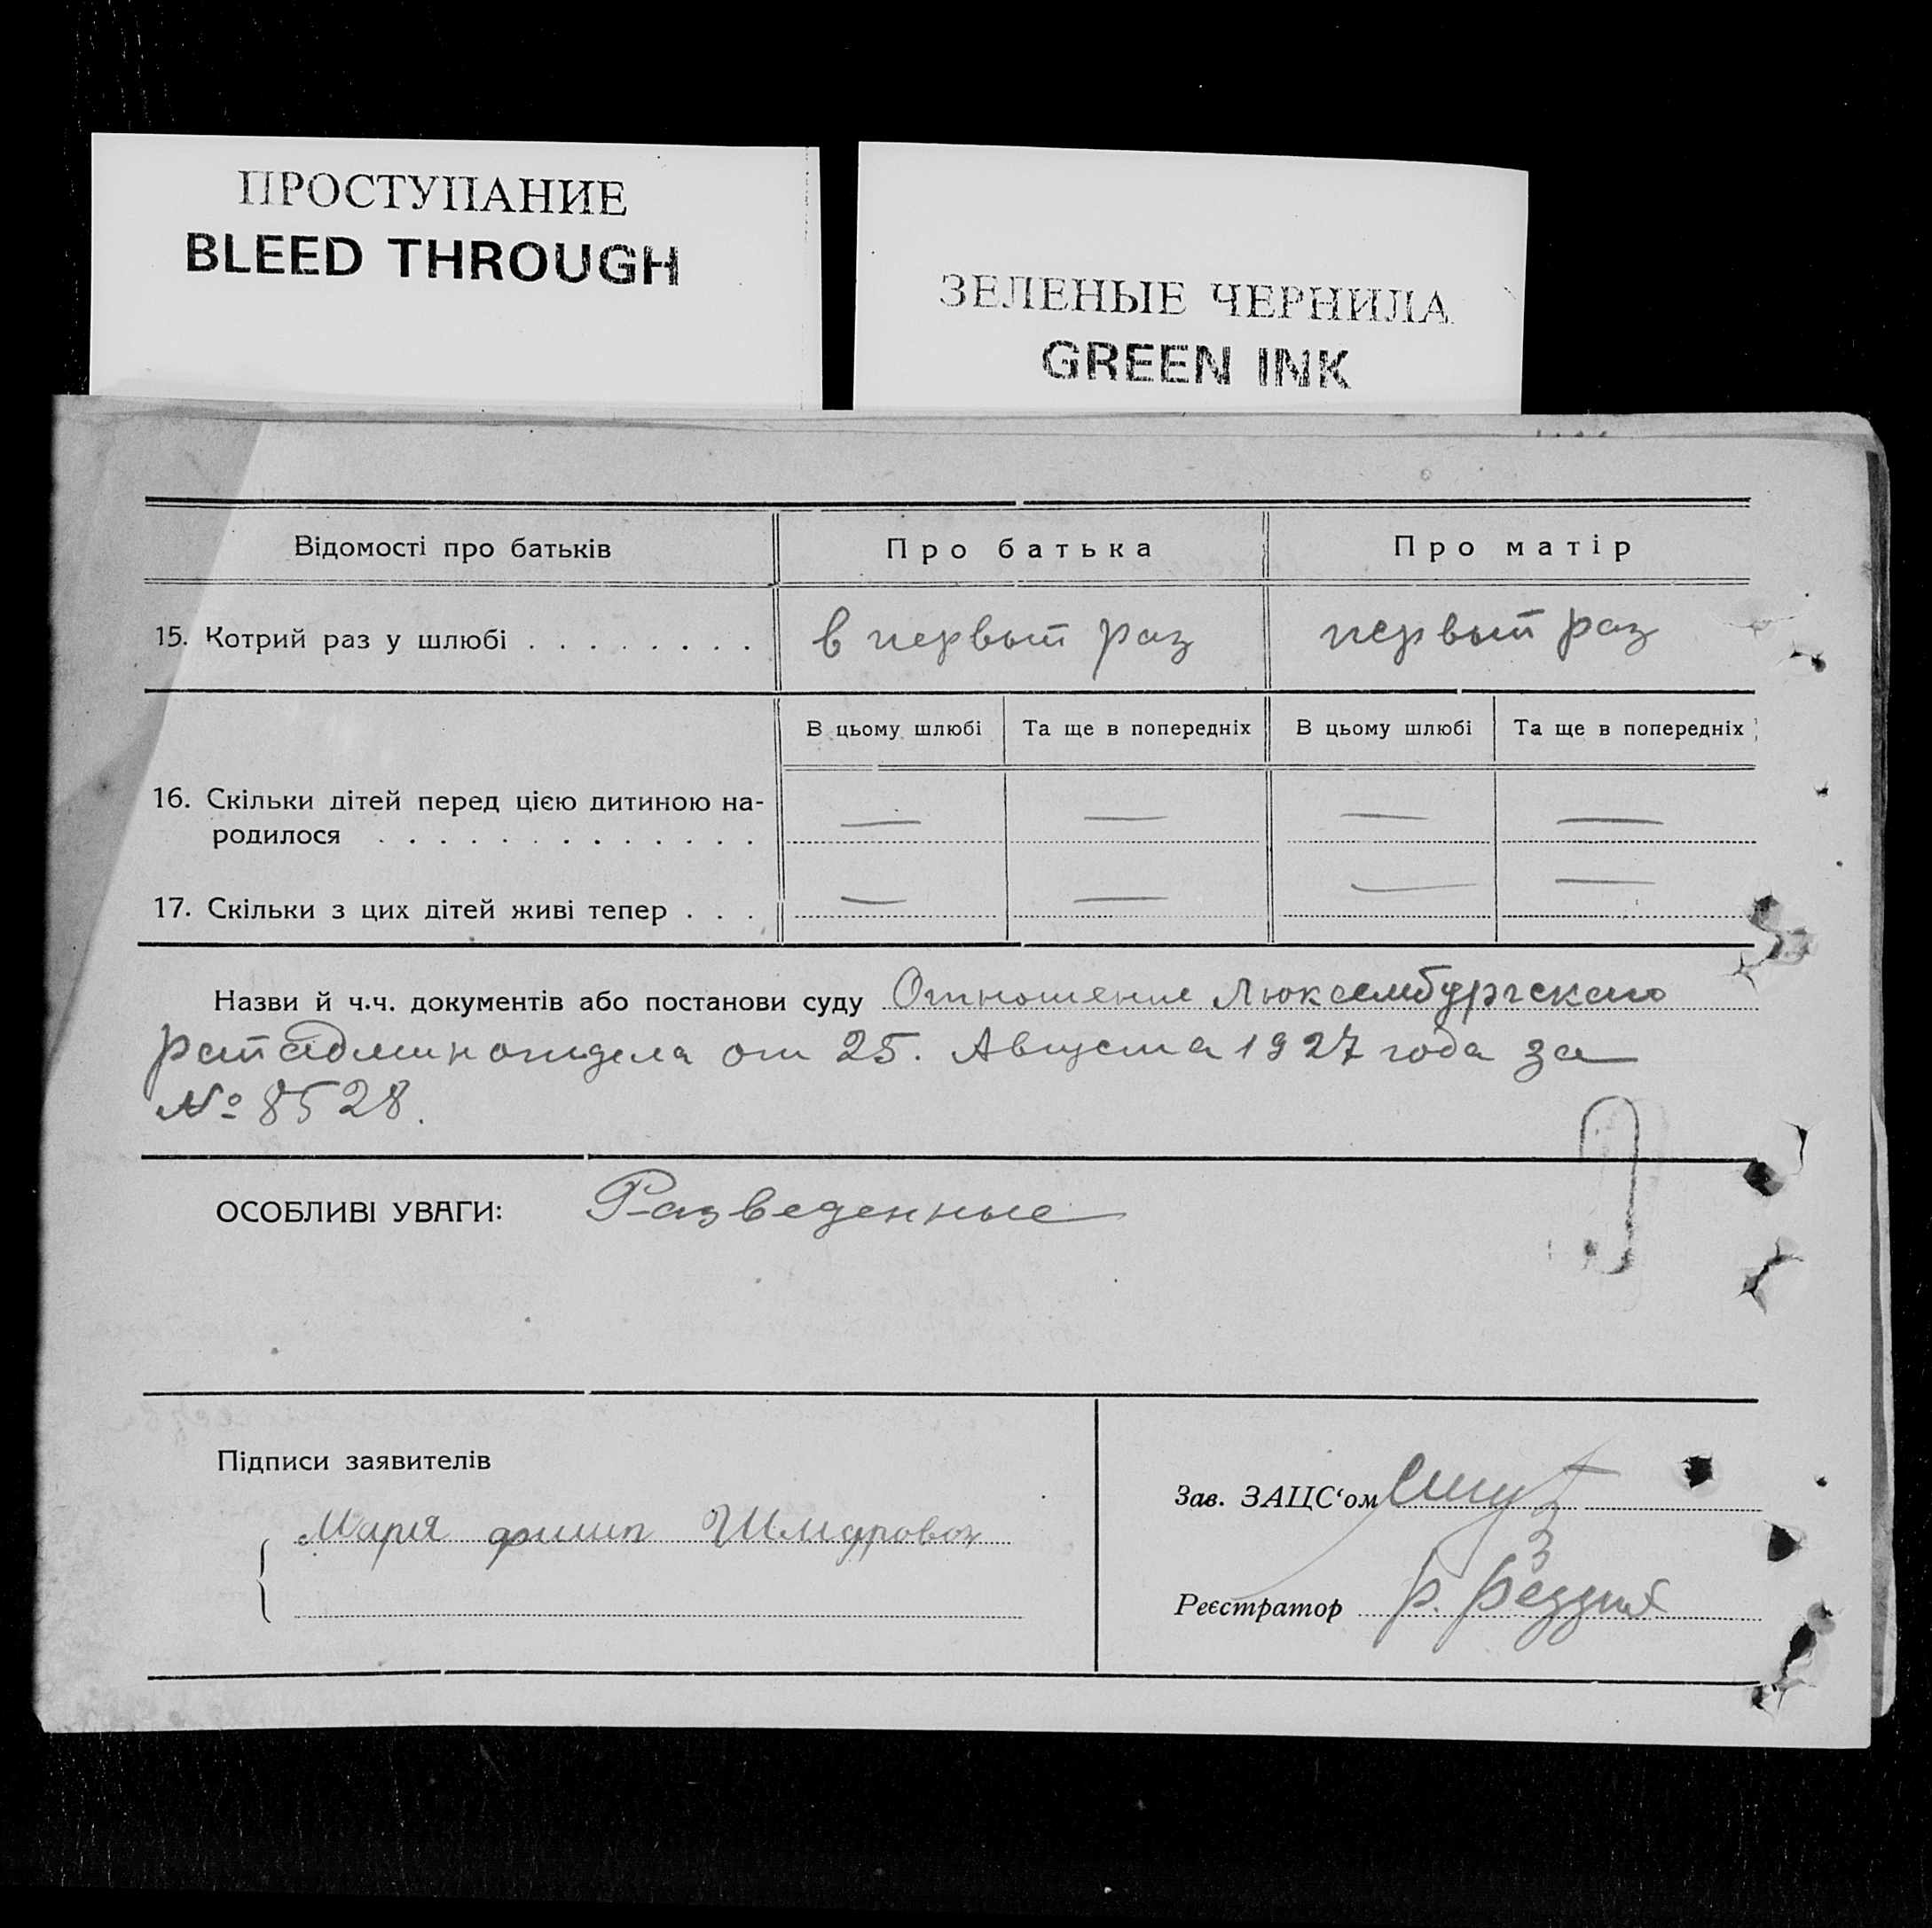 ПРОСТУПАНИЕ
BLEED THROUGH
ЗЕЛЕНЫЕ ЧЕРНИЛА
GREEN INK
Відомості про батьків Про батька Про матір
15. Котрий раз у шлюбі . . . . . . . . в первый раз первый раз
В цьому шлюбі Та ще в попередніх В цьому шлюбі Та ще в попередніх
16. Скільки дітей перед цією дитиною на-
родилося . . . . . . . . . . . . . — — — —
17. Скільки з цих дітей живі тепер . . . — — — —
Назви й ч.ч. документів або постанови суду Отношение Люксембургского
райадминотдела от 25. Августа 1927 года за
№ 8528.
ОСОБЛИВІ УВАГИ: Разведенные
Підписи заявителів
Мария
Зав. ЗАЦС‘ом
Реєстратор Р.